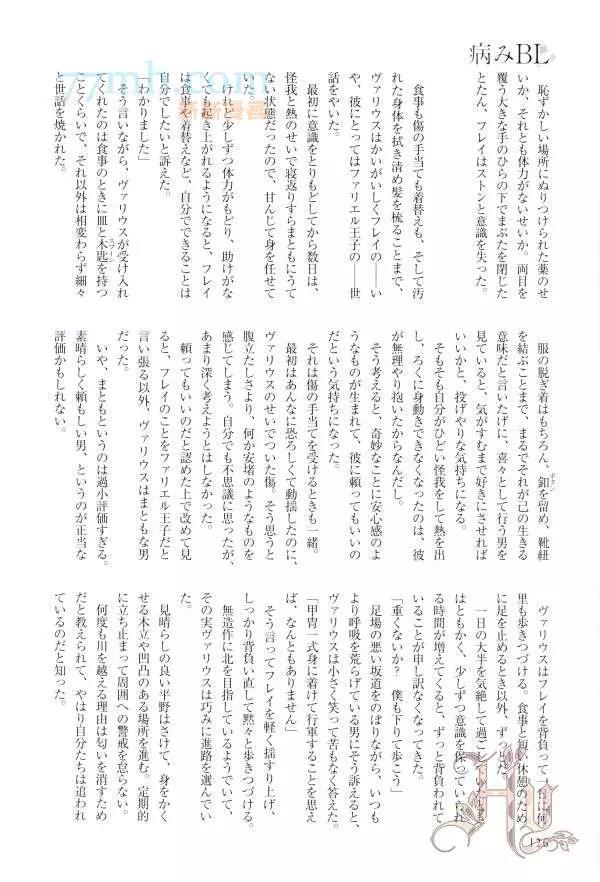 病みBL
恥ずかしい場所にぬりつけられた薬のせ
いか、それとも体力がないせいか。両目を
覆う大きな手のひらの下でまぶたを閉じた
とたん、フレイはストンと意識を失った。
食事も傷の手当ても着替えも、そして汚
れた身体を拭き清め髪を梳ることまで、
ヴァリウスはかいがいしくフレイの――い
や、彼にとってはファリエル王子の――世
話をやいた。
最初に意識をとりもどしてから数日は、
怪我と熱のせいで寝返りすらまともにうて
ない状態だったので、甘んじて身を任せて
いた。
けれど少しずつ体力がもどり、助けがな
くても起き上がれるようになると、フレイ
は食事や着替えなど、自分でできることは
自分でしたいと訴えた。
「わかりました」
そう言いながら、ヴァリウスが受け入れ
てくれたのは食事のときに皿と木匙を持つ
ことくらいで、それ以外は相変わらず細々
と世話を焼かれた。
服の脱ぎ着はもちろん、釦を留め、靴紐
を結ぶことまで、まるでそれが己の生きる
意味だと言いたげに、喜々として行う男を
見ていると、気がすむまで好きにさせれば
いいかと、投げやりな気持ちになる。
そもそも自分がひどい怪我をして熱を出
し、ろくに身動きできなくなったのは、彼
が無理やり抱いたからなんだし。
そう考えると、奇妙なことに安心感のよ
うなものが生まれて、彼に頼ってもいいの
だという気持ちになった。
それは傷の手当てを受けるときも一緒。
最初はあんなに恐ろしくて動揺したのに、
ヴァリウスのせいでついた傷。そう思うと
腹立たしさより、何か安堵のようなものを
感じてしまう。自分でも不思議に思ったが、
あまり深く考えようとはしなかった。
頼ってもいいのだと認めた上で改めて見
ると、フレイのことをファリエル王子だと
言い張る以外、ヴァリウスはまともな男
だった。
いや、まともというのは過小評価すぎる。
素晴らしく頼もしい男、というのが正当な
評価かもしれない。
ヴァリウスはフレイを背負って一日に何
里も歩きつづける。食事と短い休憩のため
に足を止めるとき以外、ずっとだ。
一日の大半を気絶して過ごしていたとき
はともかく、少しずつ意識を保っていられ
る時間が増えてくると、ずっと背負われて
いることが申し訳なくなってきた。
「重くないか？　僕も下りて歩こう」
足場の悪い坂道をのぼりながら、いつも
より呼吸を荒らげている男にそう訴えると、
ヴァリウスは小さく笑って苦もなく答えた。
「甲冑一式身に着けて行軍することを思え
ば、なんともありません」
そう言ってフレイを軽く揺すり上げ、
しっかり背負い直して黙々と歩きつづける。
無造作に北を目指しているようでいて、
その実ヴァリウスは巧みに進路を選んでい
た。
見晴らしの良い平野はさけて、身をかく
せる木立や凹凸のある場所を進む。定期的
に立ち止まって周囲への警戒を怠らない。
何度も川を越える理由は匂いを消すため
だと教えられて、やはり自分たちは追われ
ているのだと知った。
126